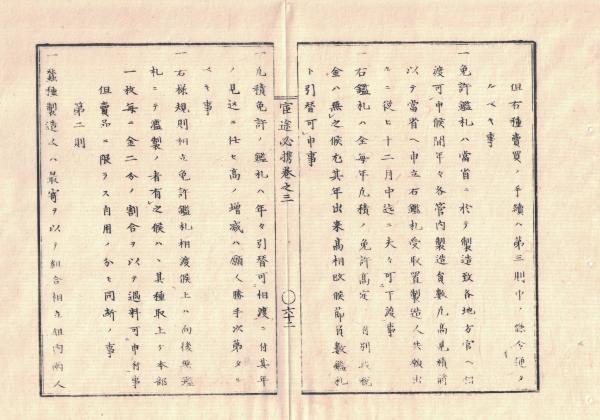 但右種賣買ノ手續ハ第三則中ノ餘今通タ
ルベキ事
一免許鑑札ハ當省ニ於テ製造致各地方官ヘ相
渡可申候間年々各管内製造員數凡高見積前
以テ當省ヘ申立右鑑札受取置製造人共願出
ニ從ヒ十二月中迄ニ夫々可下渡事
一右鑑札ハ全毎年凡積ノ免許高定ニ付別段税
金ハ無之候尤其年出来高相改候節員數鑑札
ト引替可申事
宦途必携卷之三
〇六十二
一凡積免許ノ鑑札ハ年々引替可相渡ニ付其年
ノ見込ニ任セ高ノ増減ハ願人勝手次第タル
ベキ事
一右様規則相立免許鑑札相渡候上ハ向後無鑑
札ニテ濫製ノ者有之候ハヽ其種取上ケ本部
一枚毎ニ金二分ノ割合ヲ以テ過料可申付事
但賣品ニ限ラス自用ノ分モ同斷ノ事
第二則
一蠶種製造人ハ最寄ヲ以テ組合相立組内兩人